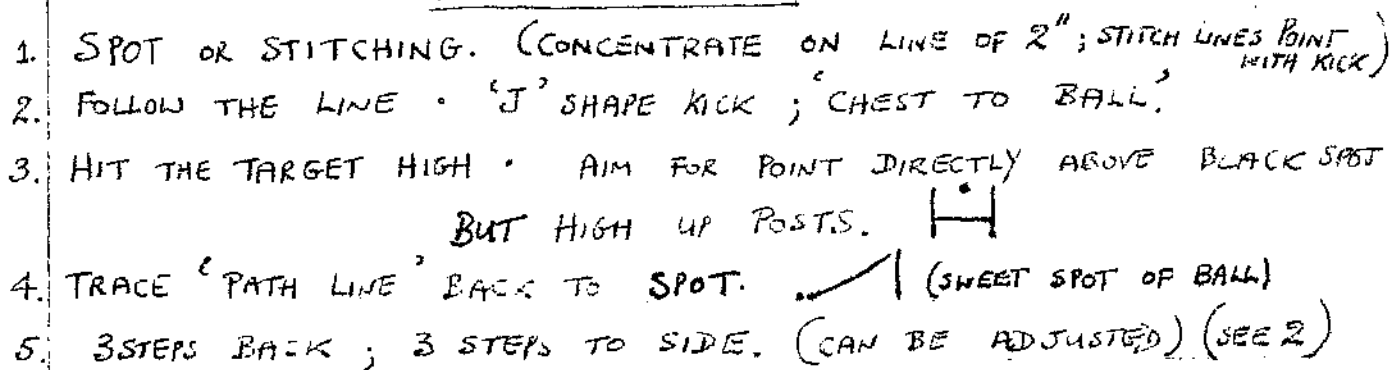 1. SPOT OR STITCHING. (CONCENTRATE ON LINE OF 2"; STITCH LINES POINT
WITH KICK)
2. FOLLOW THE LINE · 'J' SHAPE KICK ; 'CHEST TO BALL'.
3. HIT THE TARGET HIGH · AIM FOR POINT DIRECTLY ABOVE BLACK SPOT
BUT HIGH UP POSTS.
4. TRACE 'PATH LINE' BACK TO SPOT. (SWEET SPOT OF BALL)
5. 3 STEPS BACK ; 3 STEPS TO SIDE. (CAN BE ADJUSTED) (SEE 2)